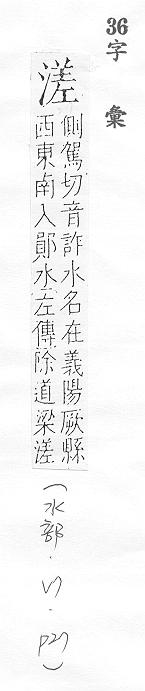 36字 彙
溠
側駕切音詐水名在義陽厥縣
西東南入鄖水左傳除道梁溠
(水部.